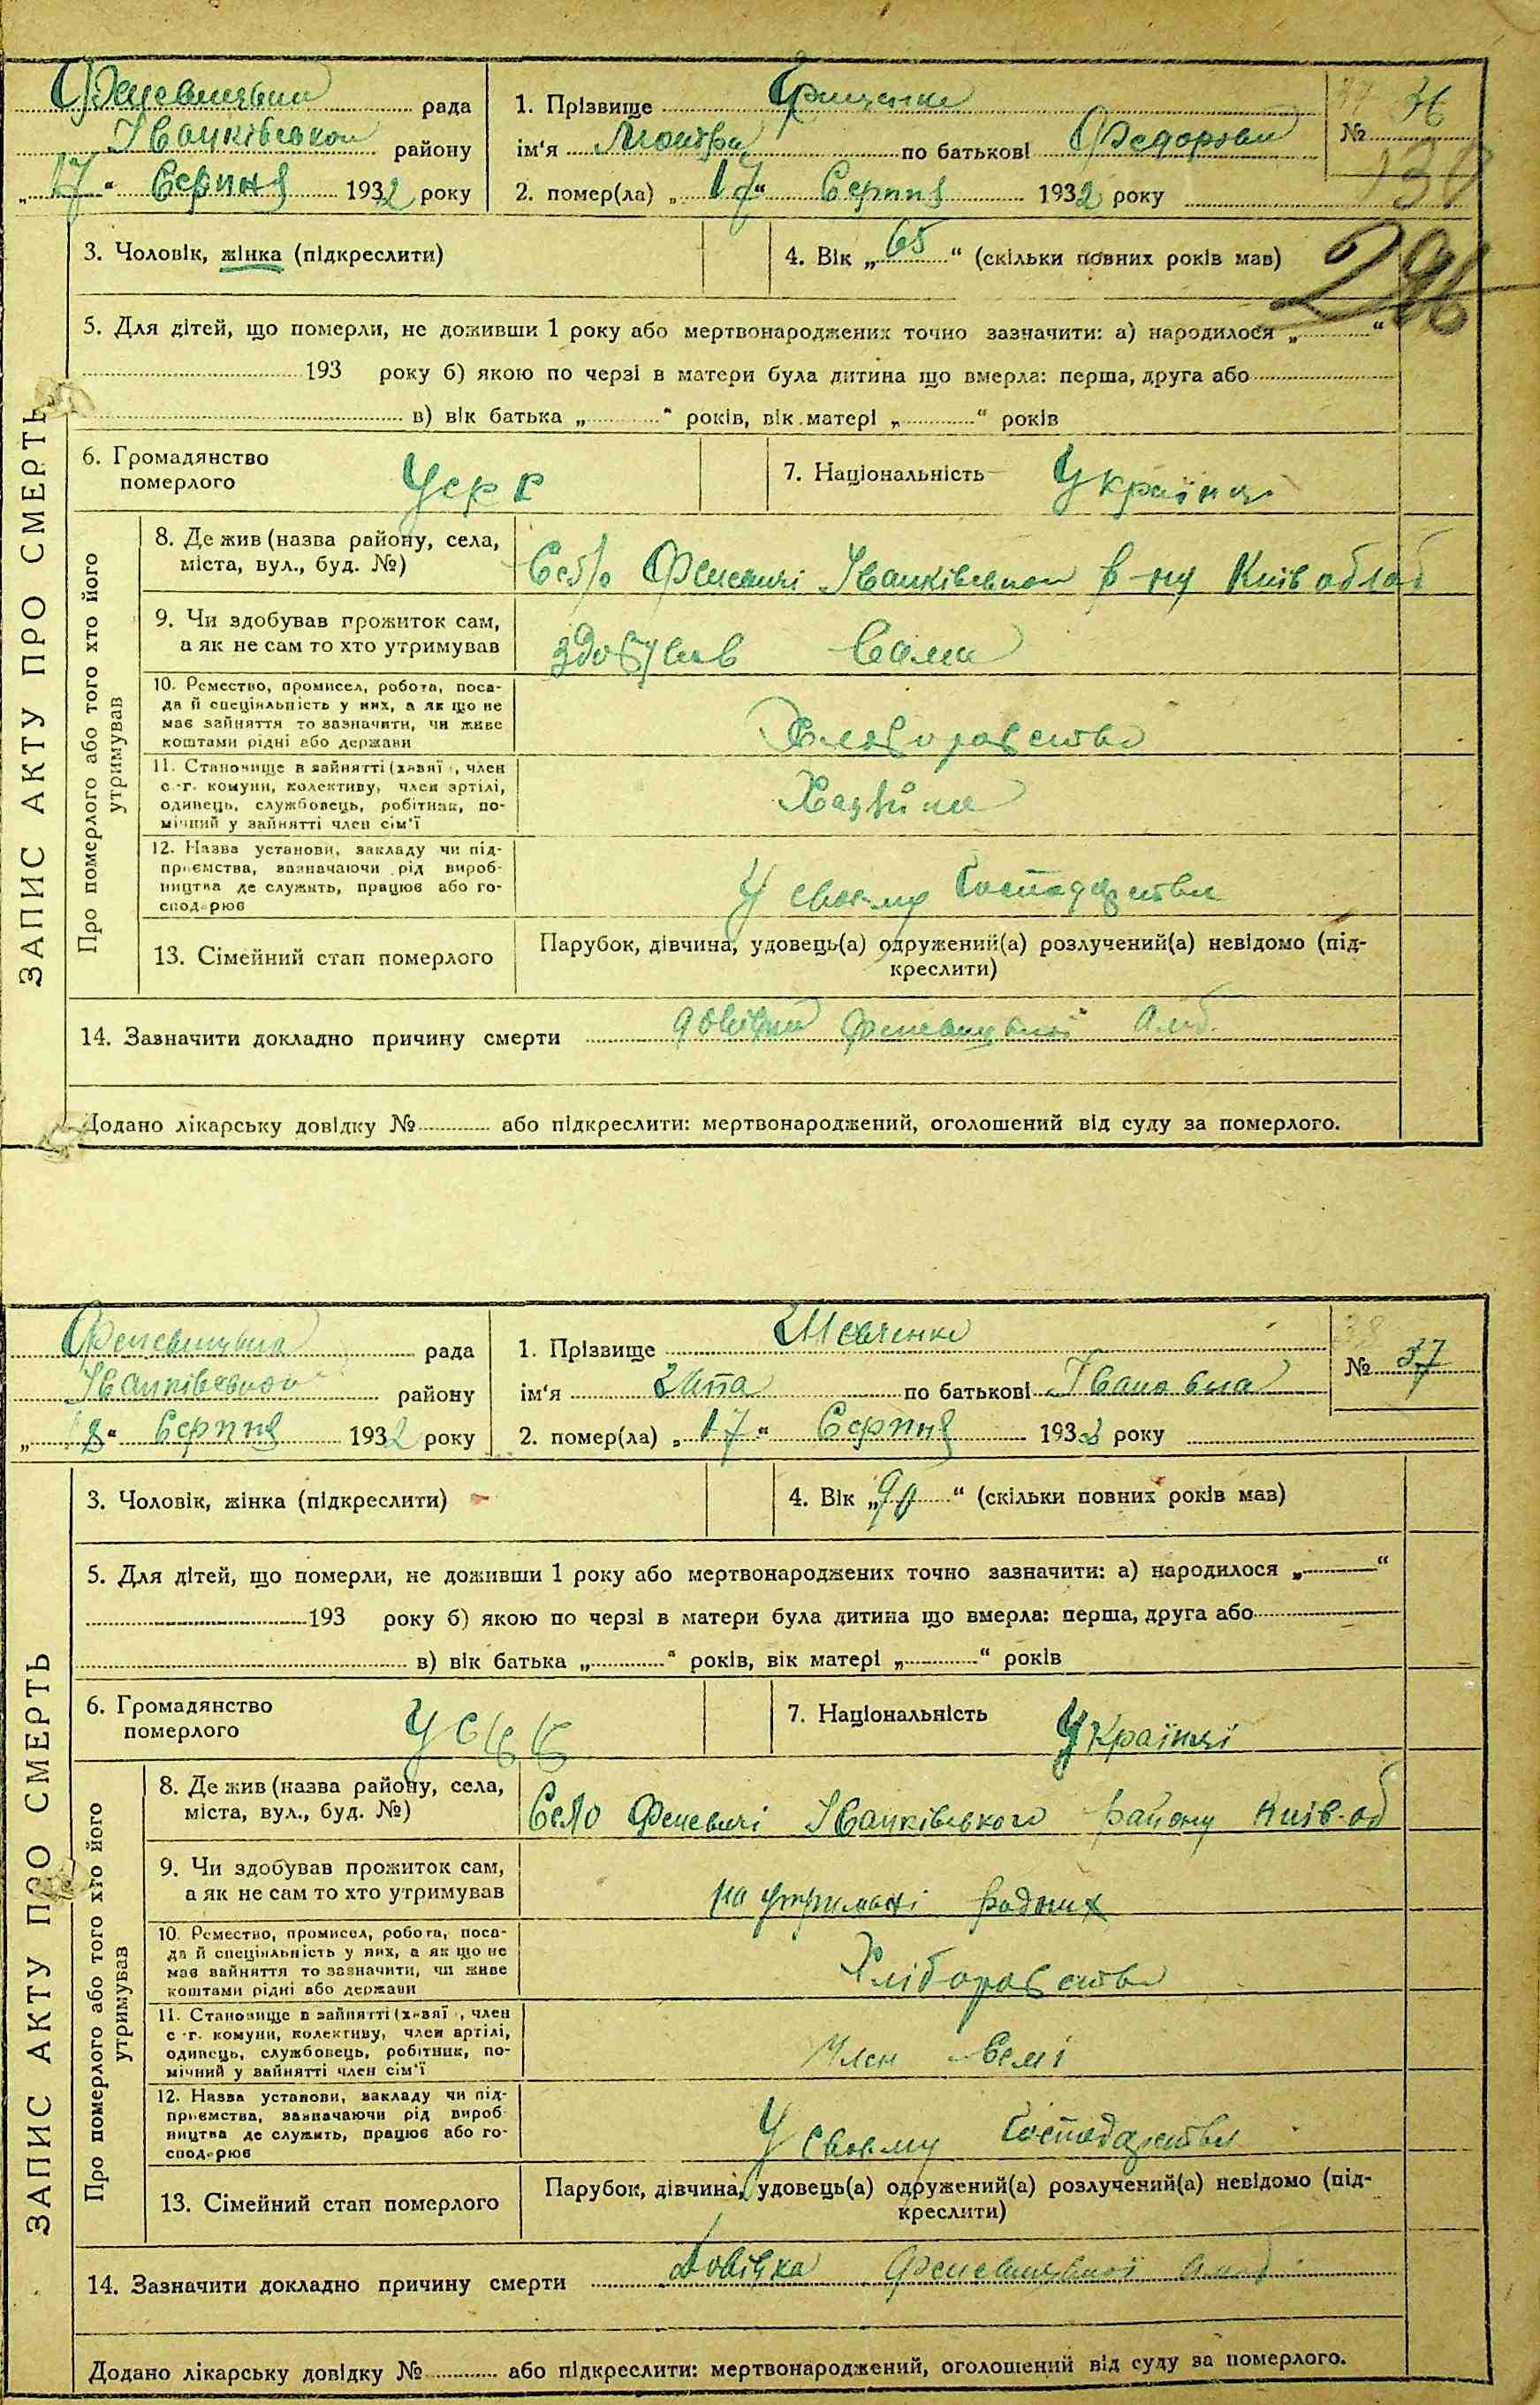 ЗАПИС АКТУ ПРО СМЕРТЬ
Феневицька рада
Іванківського району
„17“ Серпня 1932 року
1. Прізвище Грищенко
ім'я Мотря по батькові Федоровн
2. помер(ла) „17“ Серпня 1932 року
№ 36
296
3. Чоловік, жінка (підкреслити)
4. Вік „65“ (скільки повних років мав)
5. Для дітей, що померли, не доживши 1 року або мертвонароджених точно зазначити: а) народилося „ “
193 року б) якою по черзі в матери була дитина що вмерла: перша, друга або
в) вік батька „ “ років, вік матері „ “ років
6. Громадянство померлого УСРР
7. Національність Україн
Про померлого або того хто його утримував
8. Де жив (назва району, села,
міста, вул., буд. №)
Село Феневичі Іванківськой р-ну Київ област
9. Чи здобував прожиток сам,
а як не сам то хто утримував
здобував Сама
10. Ремество, промисел, робота, поса-
да й спеціяльність у них, а як що не
має зайняття то зазначити, чи живе
коштами рідні або держави
Хлеборобство
11. Становище в зайнятті (хазяї , член
с.-г. комуни, колективу, член артілі,
одинець, службовець, робітник, по-
мічний у зайнятті член сім'ї
Хазяйка
12. Назва установи, закладу чи під-
приємства, вазначаючи рід вироб-
ництва де служить, працює або го-
сподарює
У своєму Господарстви
13. Сімейний стан померлого
Парубок, дівчина, удовець(а) одружений(а) розлучений(а) невідомо (під-
креслити)
14. Зазначити докладно причину смерти довідка Феневицької Амб.
Додано лікарську довідку № або підкреслити: мертвонароджений, оголошений від суду за померлого.
ЗАПИС АКТУ ПРО СМЕРТЬ
Феневицька рада
Іванківськой району
„18“ Серпня 1932 року
1. Прізвище Шевченко
ім'я по батькові Івановна
2. помер(ла) „17“ Серпня 1932 року
№ 37
3. Чоловік, жінка (підкреслити)
4. Вік „90“ (скільки повних років мав)
5. Для дітей, що померли, не доживши 1 року або мертвонароджених точно зазначити: а) народилося „ “
193 року б) якою по черзі в матери була дитина що вмерла: перша, друга або
в) вік батька „ “ років, вік матері „ “ років
6. Громадянство померлого
7. Національність Українці
Про померлого або того хто його утримував
8. Де жив (назва району, села,
міста, вул., буд. №)
Село Феневичі Іванківського району Київ-об
9. Чи здобував прожиток сам,
а як не сам то хто утримував
на утримані родних
10. Ремество, промисел, робота, поса-
да й спеціяльність у них, а як що не
має вайняття то зазначити, чи живе
коштами рідні або держави
Хліборобство
11. Становище в зайнятті (хазяї , член
с.-г. комуни, колективу, член артілі,
одинець, службовець, робітник, по-
мічний у вайнятті член сім'ї
Член Семі
12. Назва установи, закладу чи під-
приємства, вазначаючи рід вироб-
ництва де служить, працює або го-
сподарює
У своєму Господарстви
13. Сімейний стан померлого
Парубок, дівчина, удовець(а) одружений(а) розлучений(а) невідомо (під-
креслити)
14. Зазначити докладно причину смерти Довідка Феневицької Амб
Додано лікарську довідку № або підкреслити: мертвонароджений, оголошений від суду за померлого.